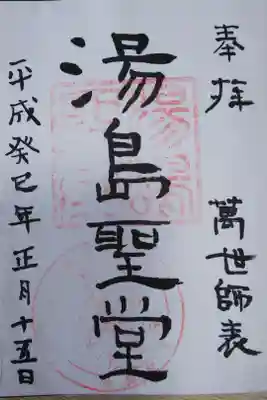 奉拝　萬世師表
湯島聖堂
平成癸巳年正月十五日